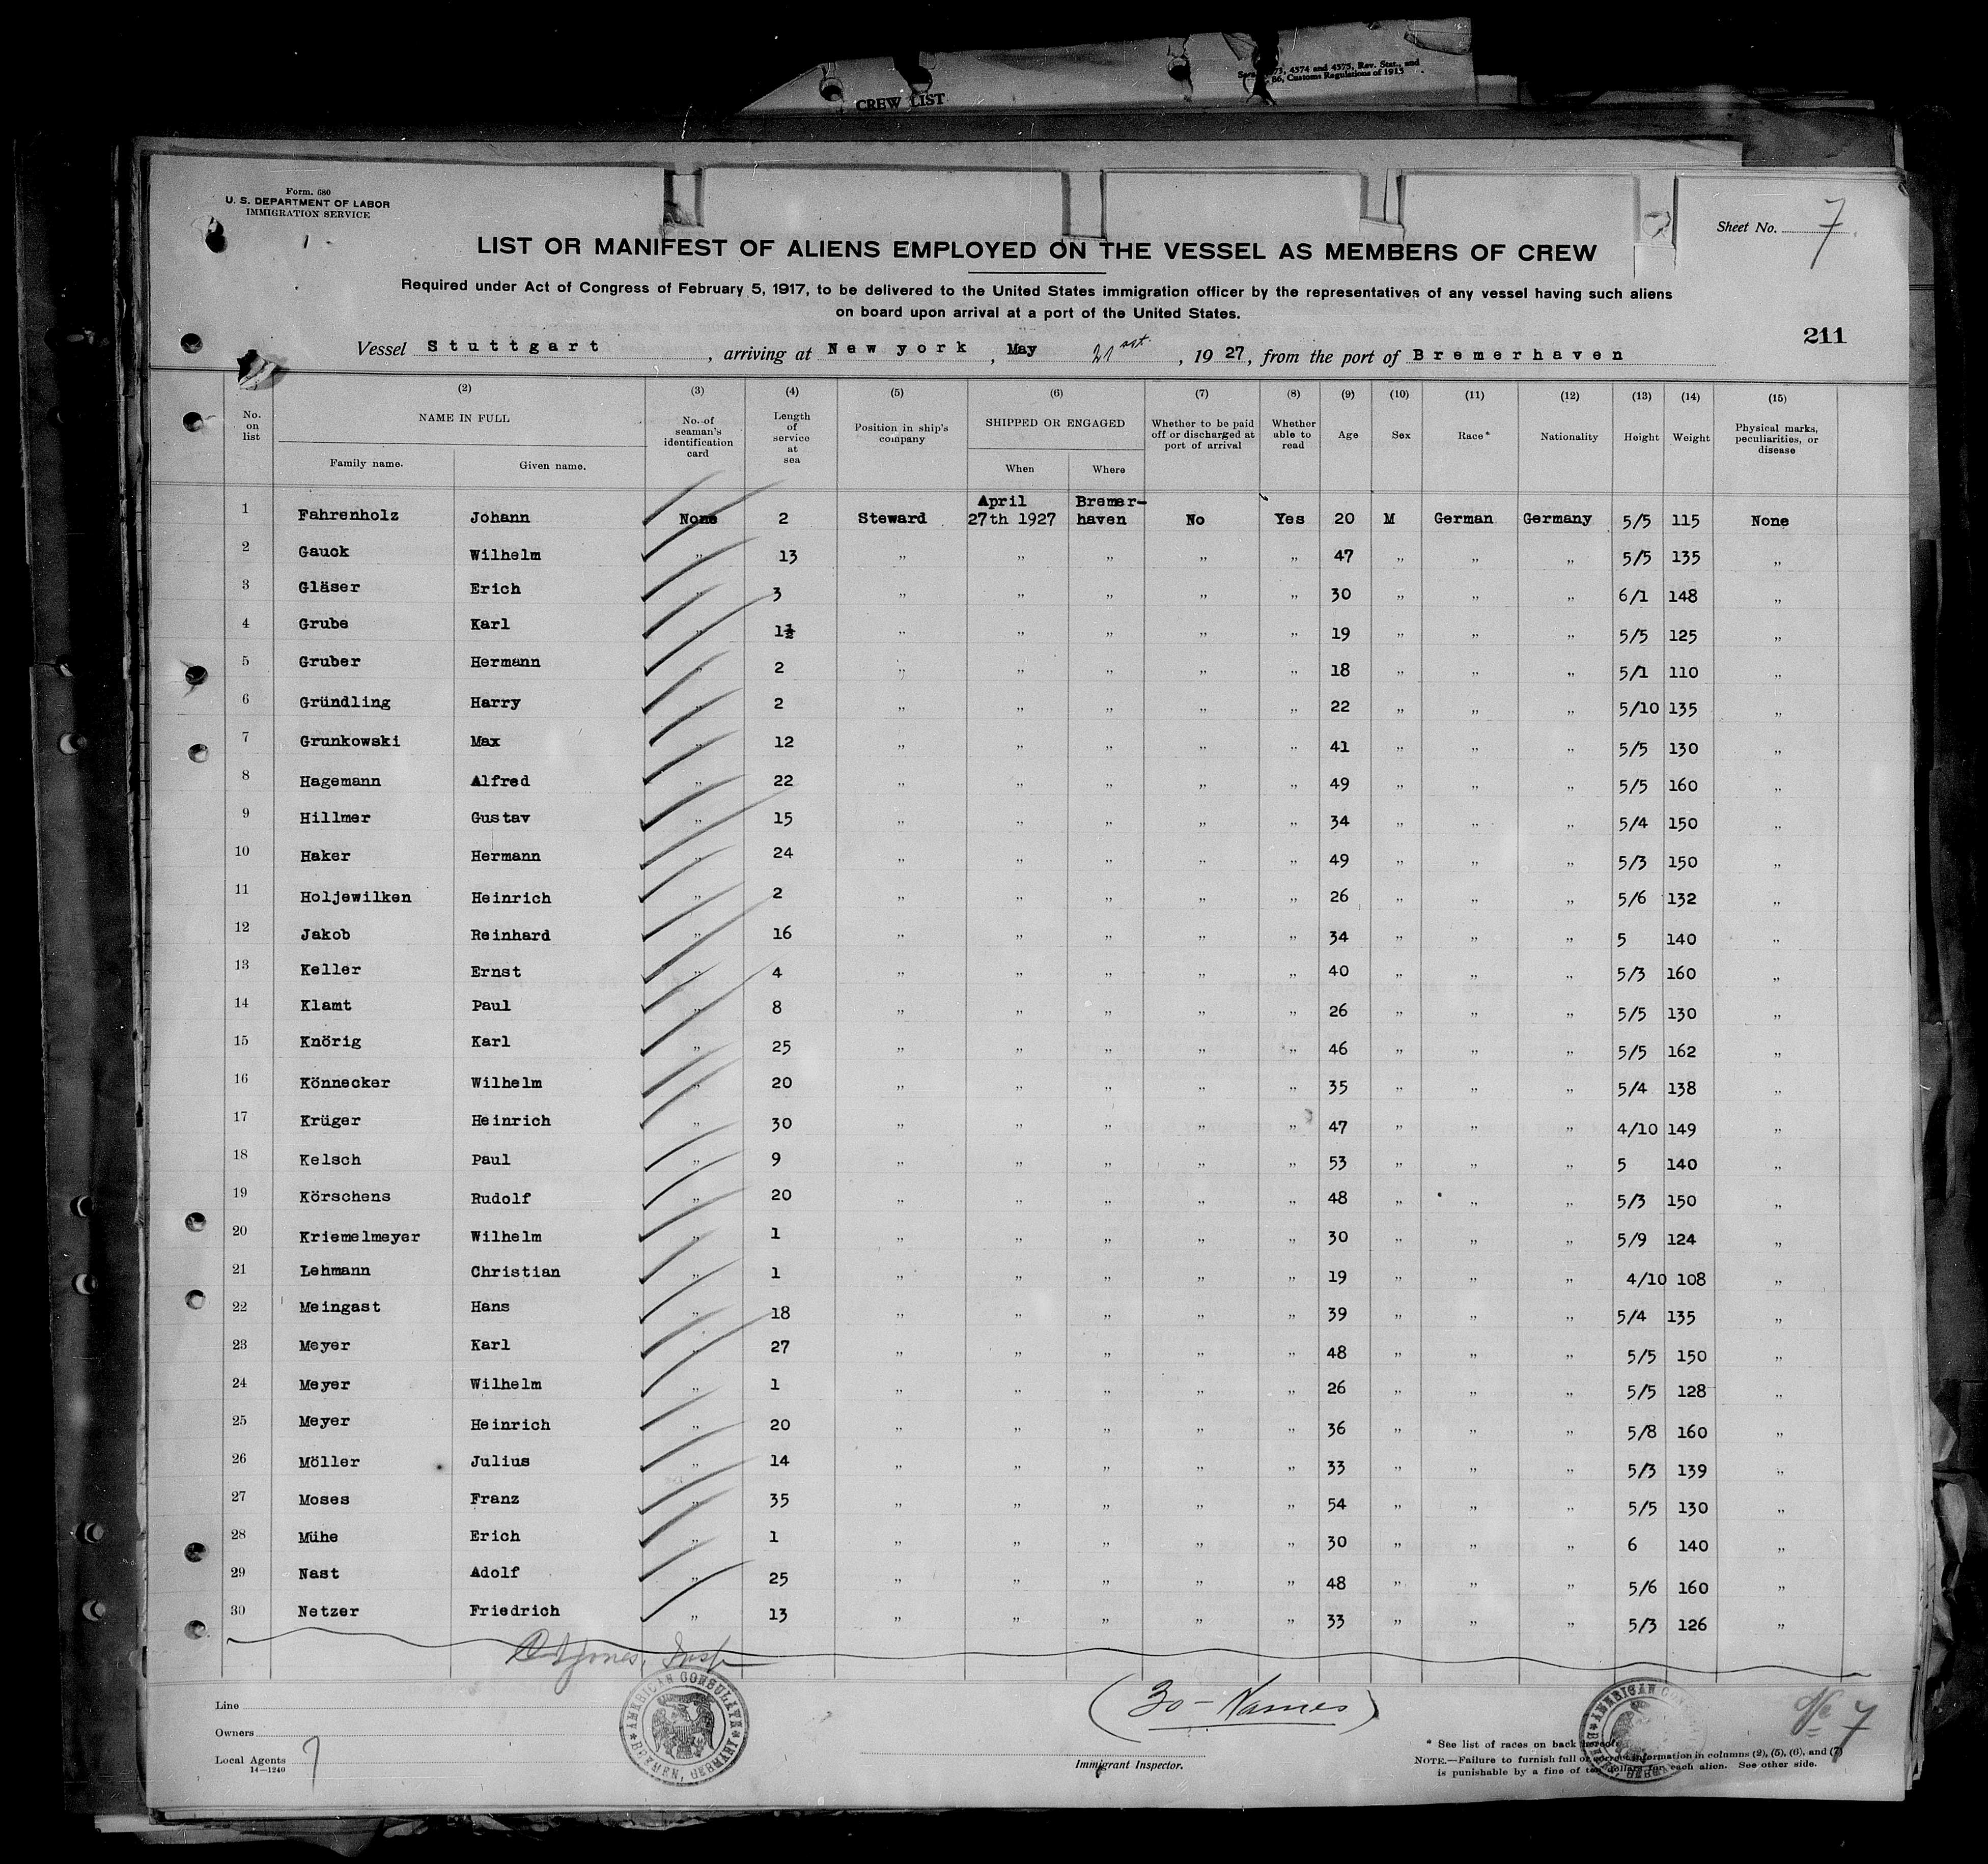 CREW LIST
4574 and 4575, Rev. Stat., and
86, Customs Regulations of 1915
Form. 680
U. S. DEPARTMENT OF LABOR
IMMIGRATION SERVICE
Sheet No. 7
LIST OR MANIFEST OF ALIENS EMPLOYED ON THE VESSEL AS MEMBERS OF CREW
Required under Act of Congress of February 5, 1917, to be delivered to the United States immigration officer by the representatives of any vessel having such aliens
on board upon arrival at a port of the United States.
211
Vessel Stuttgart, arriving at New york, May 21st., 1927, from the port of Bremerhaven
(2) (3) (4) (5) (6) (7) (8) (9) (10) (11) (12) (13) (14) (15)
No. on list NAME IN FULL Family name. Given name. No. of seaman's identification card Length of service at sea Position in ship's company SHIPPED OR ENGAGED When Where Whether to be paid off or discharged at port of arrival Whether able to read Age Sex Race* Nationality Height Weight Physical marks, peculiarities, or disease
1 Fahrenholz Johann None 2 Steward April 27th 1927 Bremer-haven No Yes 20 M German Germany 5/5 115 None
2 Gauck Wilhelm „ 13 „ „ „ „ „ 47 „ „ „ 5/5 135 „
3 Gläser Erich „ 3 „ „ „ „ „ 30 „ „ „ 6/1 148 „
4 Grube Karl „ 1½ „ „ „ „ „ 19 „ „ „ 5/5 125 „
5 Gruber Hermann „ 2 „ „ „ „ „ 18 „ „ „ 5/1 110 „
6 Gründling Harry „ 2 „ „ „ „ „ 22 „ „ „ 5/10 135 „
7 Grunkowski Max „ 12 „ „ „ „ „ 41 „ „ „ 5/5 130 „
8 Hagemann Alfred „ 22 „ „ „ „ „ 49 „ „ „ 5/5 160 „
9 Hillmer Gustav „ 15 „ „ „ „ „ 34 „ „ „ 5/4 150 „
10 Haker Hermann „ 24 „ „ „ „ „ 49 „ „ „ 5/3 150 „
11 Holjewilken Heinrich „ 2 „ „ „ „ „ 26 „ „ „ 5/6 132 „
12 Jakob Reinhard „ 16 „ „ „ „ „ 34 „ „ „ 5 140 „
13 Keller Ernst „ 4 „ „ „ „ „ 40 „ „ „ 5/3 160 „
14 Klamt Paul „ 8 „ „ „ „ „ 26 „ „ „ 5/5 130 „
15 Knörig Karl „ 25 „ „ „ „ „ 46 „ „ „ 5/5 162 „
16 Könnecker Wilhelm „ 20 „ „ „ „ „ 35 „ „ „ 5/4 138 „
17 Krüger Heinrich „ 30 „ „ „ „ „ 47 „ „ „ 4/10 149 „
18 Kelsch Paul „ 9 „ „ „ „ „ 53 „ „ „ 5 140 „
19 Körschens Rudolf „ 20 „ „ „ „ „ 48 „ „ „ 5/3 150 „
20 Kriemelmeyer Wilhelm „ 1 „ „ „ „ „ 30 „ „ „ 5/9 124 „
21 Lehmann Christian „ 1 „ „ „ „ „ 19 „ „ „ 4/10 108 „
22 Meingast Hans „ 18 „ „ „ „ „ 39 „ „ „ 5/4 135 „
23 Meyer Karl „ 27 „ „ „ „ „ 48 „ „ „ 5/5 150 „
24 Meyer Wilhelm „ 1 „ „ „ „ „ 26 „ „ „ 5/5 128 „
25 Meyer Heinrich „ 20 „ „ „ „ „ 36 „ „ „ 5/8 160 „
26 Möller Julius „ 14 „ „ „ „ „ 33 „ „ „ 5/3 139 „
27 Moses Franz „ 35 „ „ „ „ „ 54 „ „ „ 5/5 130 „
28 Mühe Erich „ 1 „ „ „ „ „ 30 „ „ „ 6 140 „
29 Nast Adolf „ 25 „ „ „ „ „ 48 „ „ „ 5/6 160 „
30 Netzer Friedrich „ 13 „ „ „ „ „ 33 „ „ „ 5/3 126 „
Jones, Insp
Line
Owners
Local Agents 7
14—1240
AMERICAN CONSULATE BREMEN, GERMANY
(30 - Names)
Immigrant Inspector.
No 7
* See list of races on back hereof.
NOTE.—Failure to furnish full or correct information in columns (2), (5), (6), and (7)
is punishable by a fine of ten dollars for each alien. See other side.